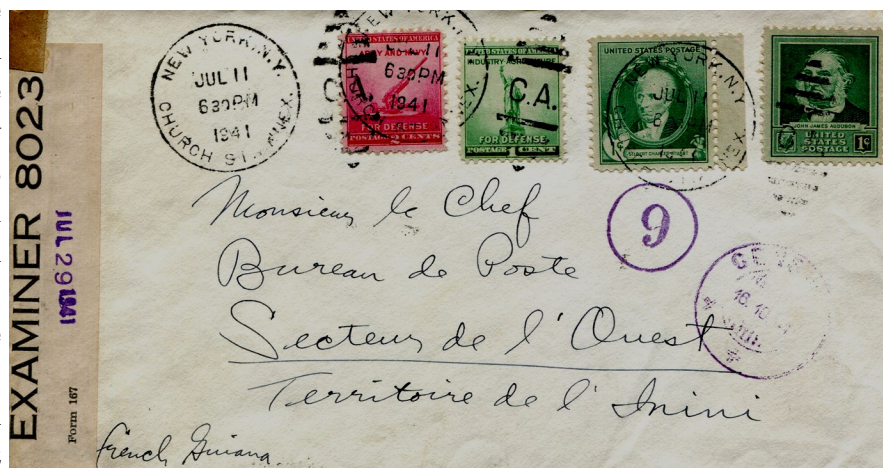 EXAMINER 8023
JUL 29 1941
Form 167
NEW YORK, N.Y.
JUL 11
630PM
1941
CHURCH ST. ANNEX.
UNITED STATES OF AMERICA
ARMY AND NAVY
FOR DEFENSE
POSTAGE 2 CENTS
JUL 11
630PM
1941
UNITED STATES OF AMERICA
INDUSTRY AGRICULTURE
FOR DEFENSE
POSTAGE 1 CENT
C.A.
UNITED STATES POSTAGE
GILBERT CHARLES STUART
NEW YORK, N.Y.
JUL 11
JOHN JAMES AUDUBON
UNITED
STATES
POSTAGE
1¢
9
Monsieur le Chef
Bureau de Poste
Secteur de l'Ouest
Territoire de l'Inini
French Guiana